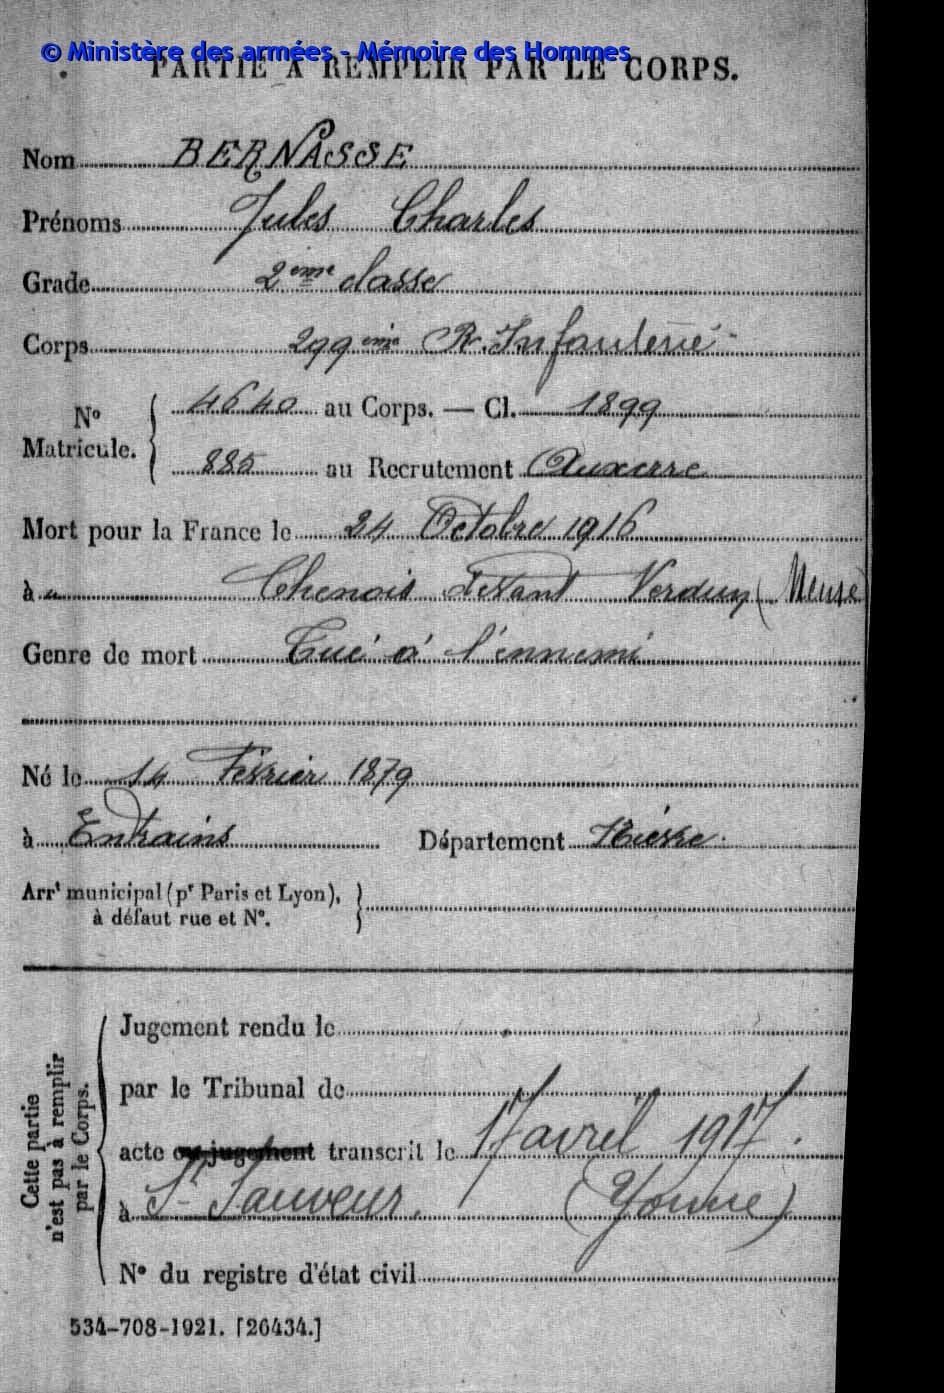 © Ministère des armées - Mémoire des Hommes
PARTIE À REMPLIR PAR LE CORPS.
Nom BERNASSE
Prénoms Jules Charles
Grade 2ème classe
Corps 299ème R. Infanterie
N° Matricule. { 4640 au Corps. — Cl. 1899
885 au Recrutement Auxerre
Mort pour la France le 24 Octobre 1916
à Chenois devant Verdun (Meuse
Genre de mort Tué à l'ennemi
Né le 14 Février 1879
à Entrains Département Nièvre
Arrt municipal (pr Paris et Lyon), }
à défaut rue et N°.
Cette partie
n'est pas à remplir
par le Corps.
Jugement rendu le
par le Tribunal de
acte ou jugement transcrit le 17 avril 1917.
à St Sauveur. (Yonne)
N° du registre d'état civil
534-708-1921. [26434.]